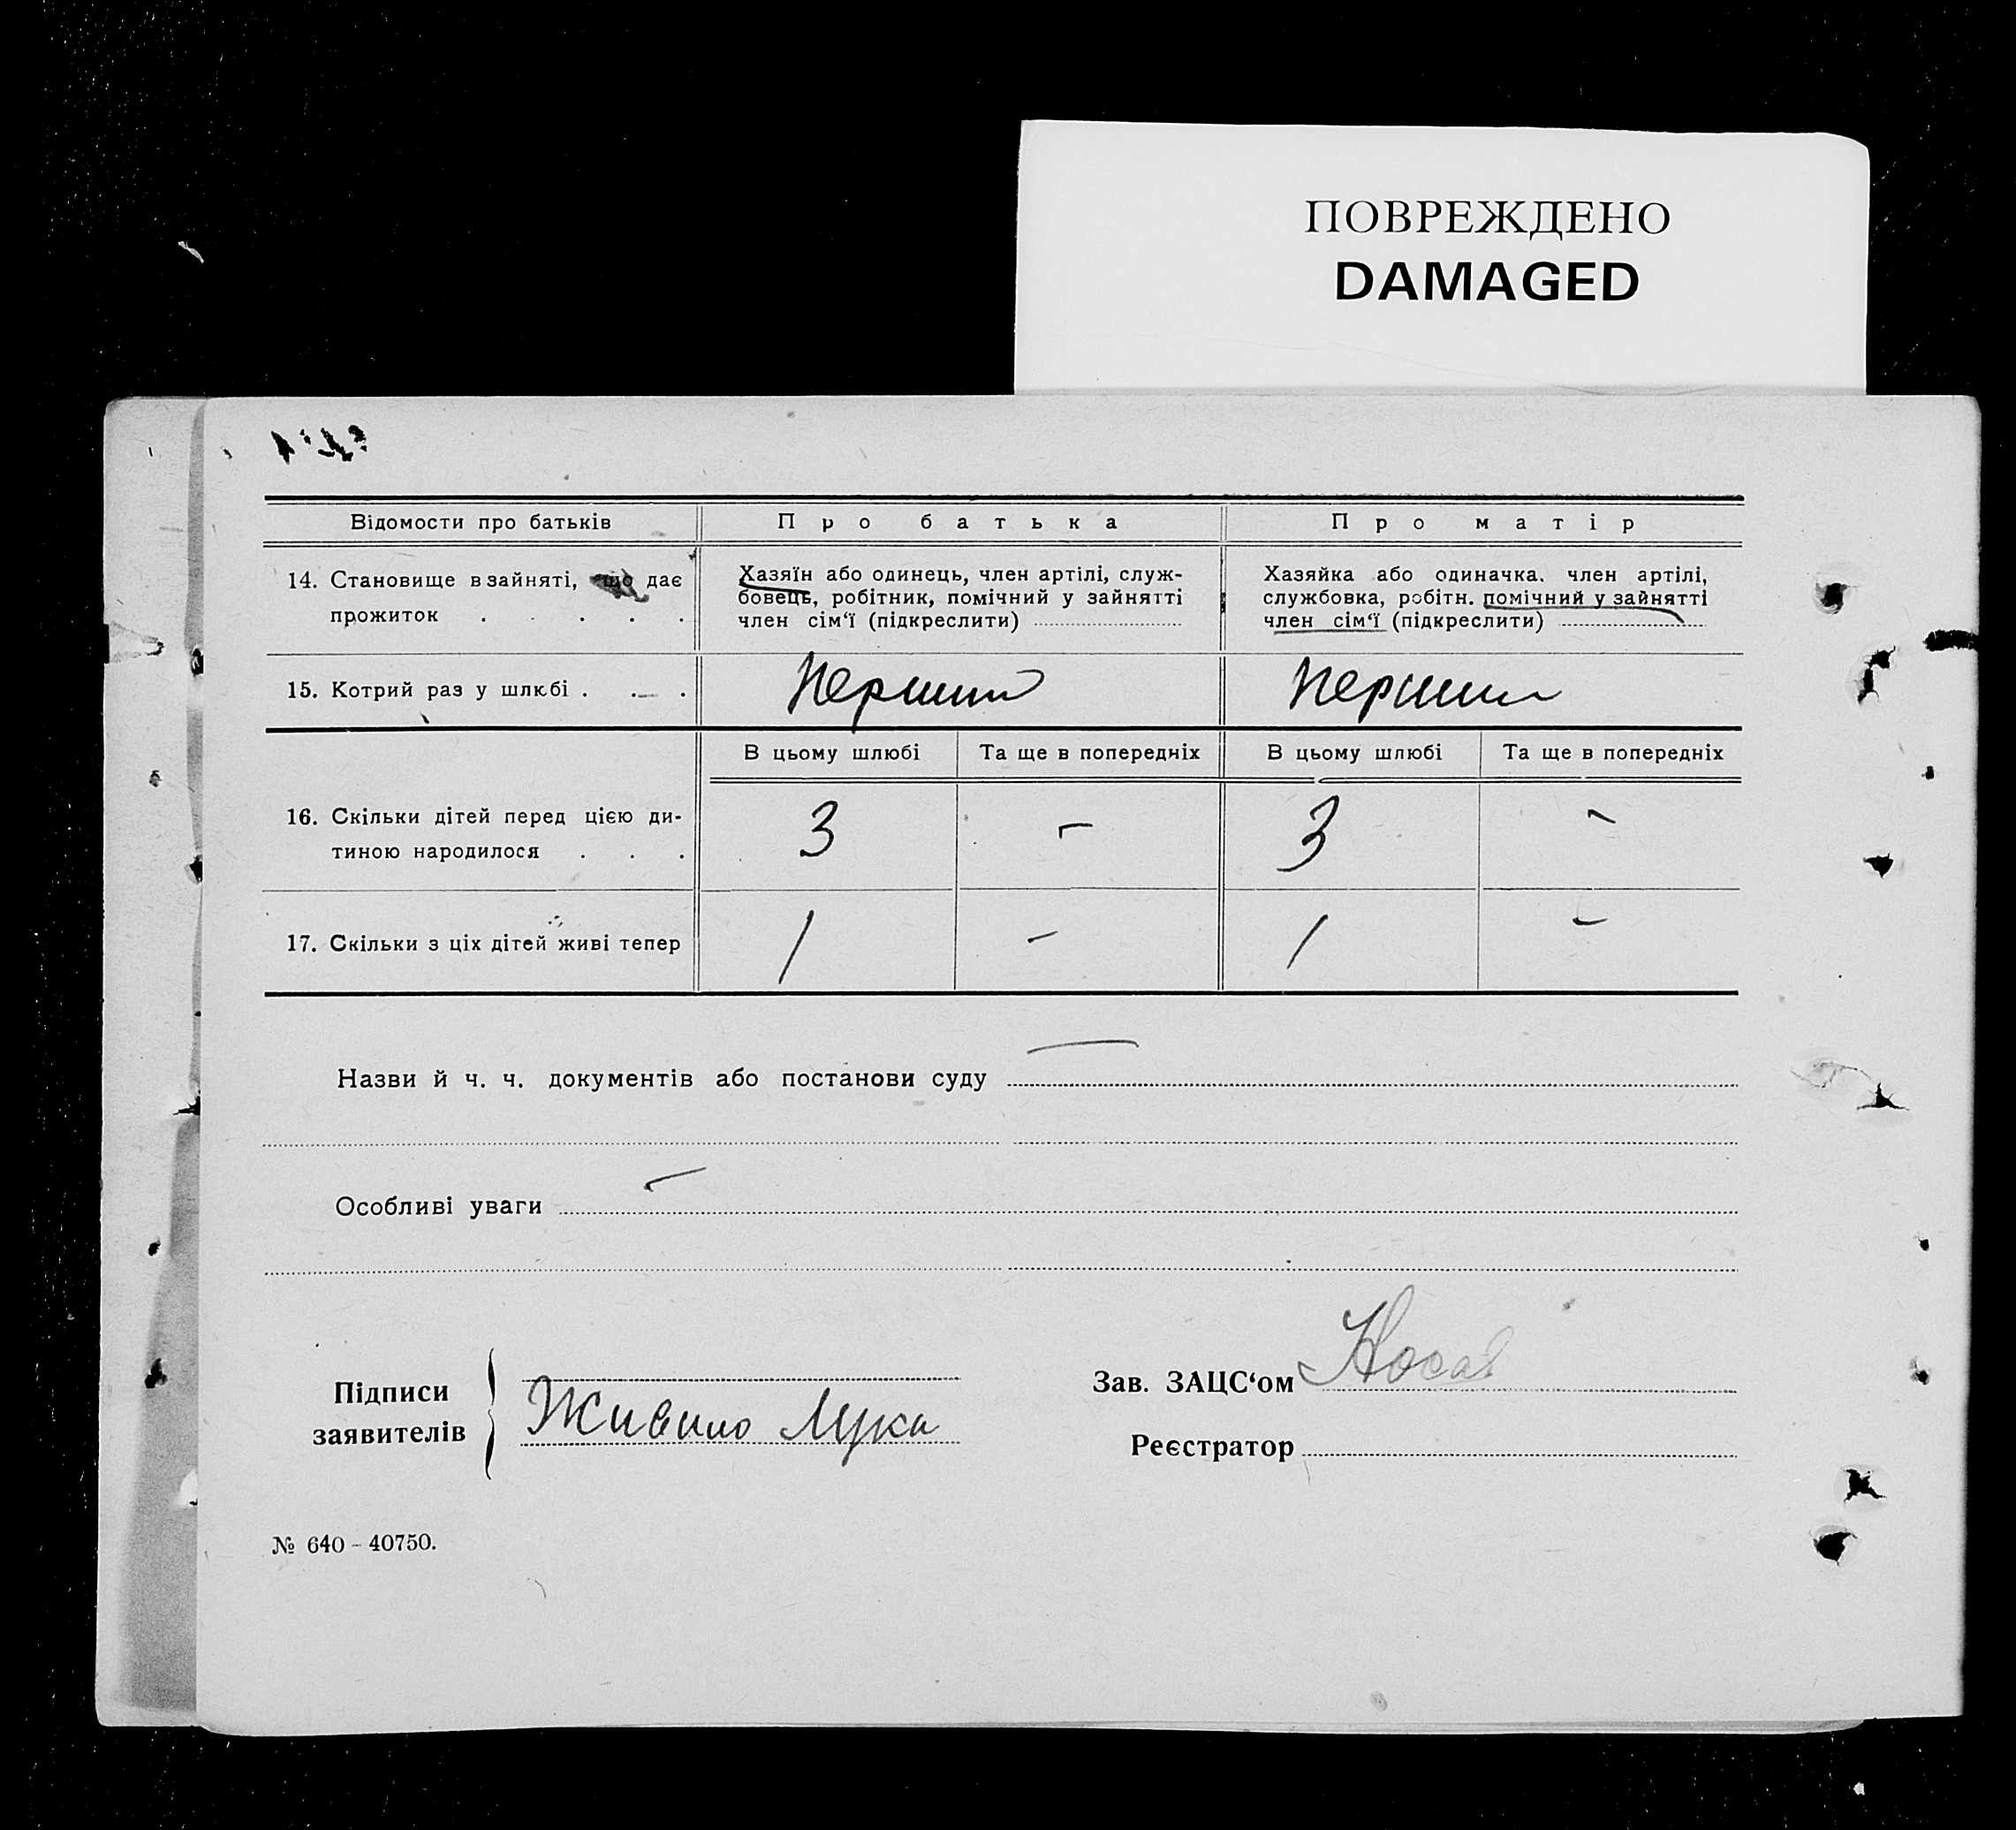 ПОВРЕЖДЕНО
DAMAGED
Відомости про батьків
Про батька
Про матір
14. Становище в зайняті, що дає
прожиток . . . . .
Хазяїн або одинець, член артілі, служ-
бовець, робітник, помічний у зайнятті
член сім‘ї (підкреслити)
Хазяйка або одиначка. член артілі,
службовка, робітн. помічний у зайнятті
член сім‘ї (підкреслити)
15. Котрий раз у шлюбі . . .
Перший
Перший
В цьому шлюбі
Та ще в попередніх
В цьому шлюбі
Та ще в попередніх
16. Скільки дітей перед цією ди-
тиною народилося . . .
3
-
3
-
17. Скільки з ціх дітей живі тепер
1
-
1
-
Назви й ч. ч. документів або постанови суду —
Особливі уваги —
Підписи
заявителів
Лука
Зав. ЗАЦС‘ом
Реєстратор
№ 640 - 40750.